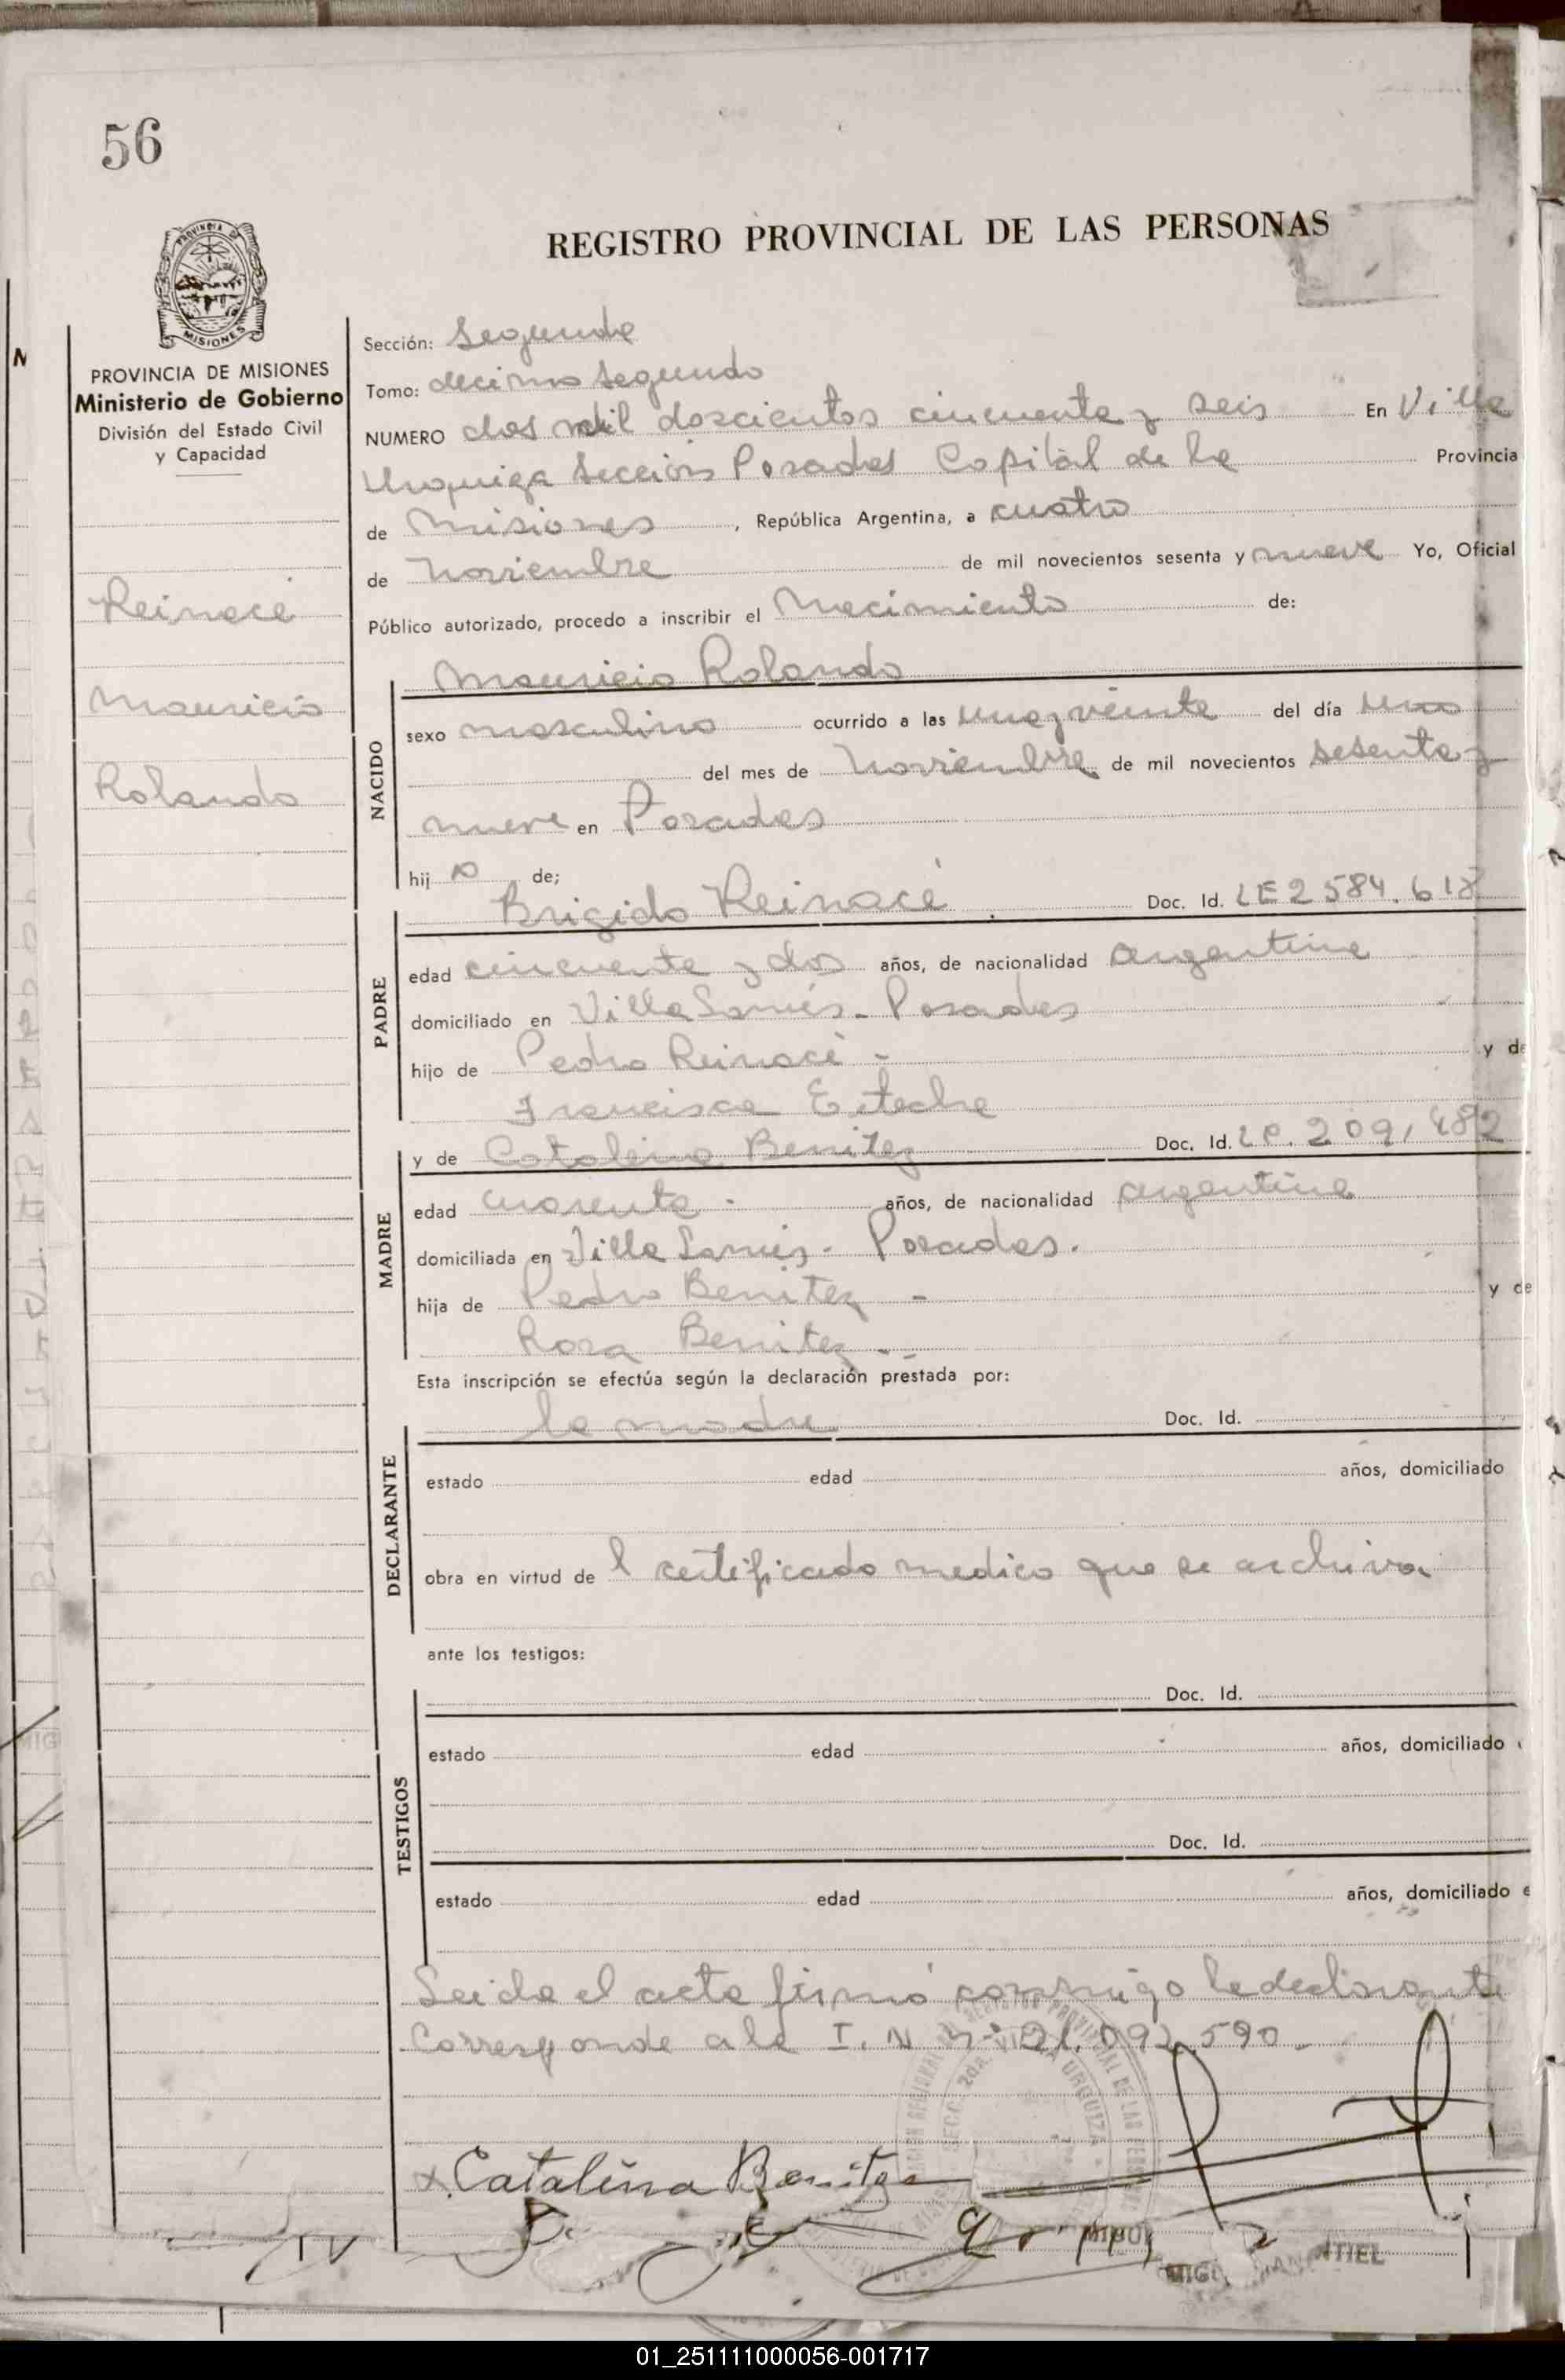 56
REGISTRO PROVINCIAL DE LAS PERSONAS
PROVINCIA DE MISIONES
Ministerio de Gobierno
División del Estado Civil
y Capacidad
Reinacé
Mauricio
Rolando
Sección: Segunda
Tomo: decimo segundo
NUMERO dos mil doscientos cincuenta y seis En Villa
Urquiza Sección Posadas Capital de la Provincia
de Misiones, República Argentina, a cuatro
de Noviembre de mil novecientos sesenta y nueve Yo, Oficial
Público autorizado, procedo a inscribir el Nacimiento de:
Mauricio Rolando
NACIDO
sexo masculino ocurrido a las una y veinte del día uno
del mes de Noviembre de mil novecientos sesenta y
nueve en Posadas
hijo de;
Brigido Reinacé Doc. Id. LE 2584.618
PADRE
edad cincuenta y dos años, de nacionalidad argentina
domiciliado en Villa Lanús - Posadas
hijo de Pedro Reinacé - y de
Francisca
y de Catalina Benitez Doc. Id. LC. 209,482
MADRE
edad cuarenta - años, de nacionalidad argentina
domiciliada en Villa Lanús - Posadas.
hija de Pedro Benitez - y de
Rosa Benitez - -
Esta inscripción se efectúa según la declaración prestada por:
la madre Doc. Id.
DECLARANTE
estado edad años, domiciliado
obra en virtud del certificado medico que se archiva
ante los testigos:
Doc. Id.
TESTIGOS
estado edad años, domiciliado
Doc. Id.
estado edad años, domiciliado e
Leida el acta firmó conmigo la declarante
Corresponde a la I. N Nº 21.092.590 -
x Catalina Benitez
01_251111000056-001717